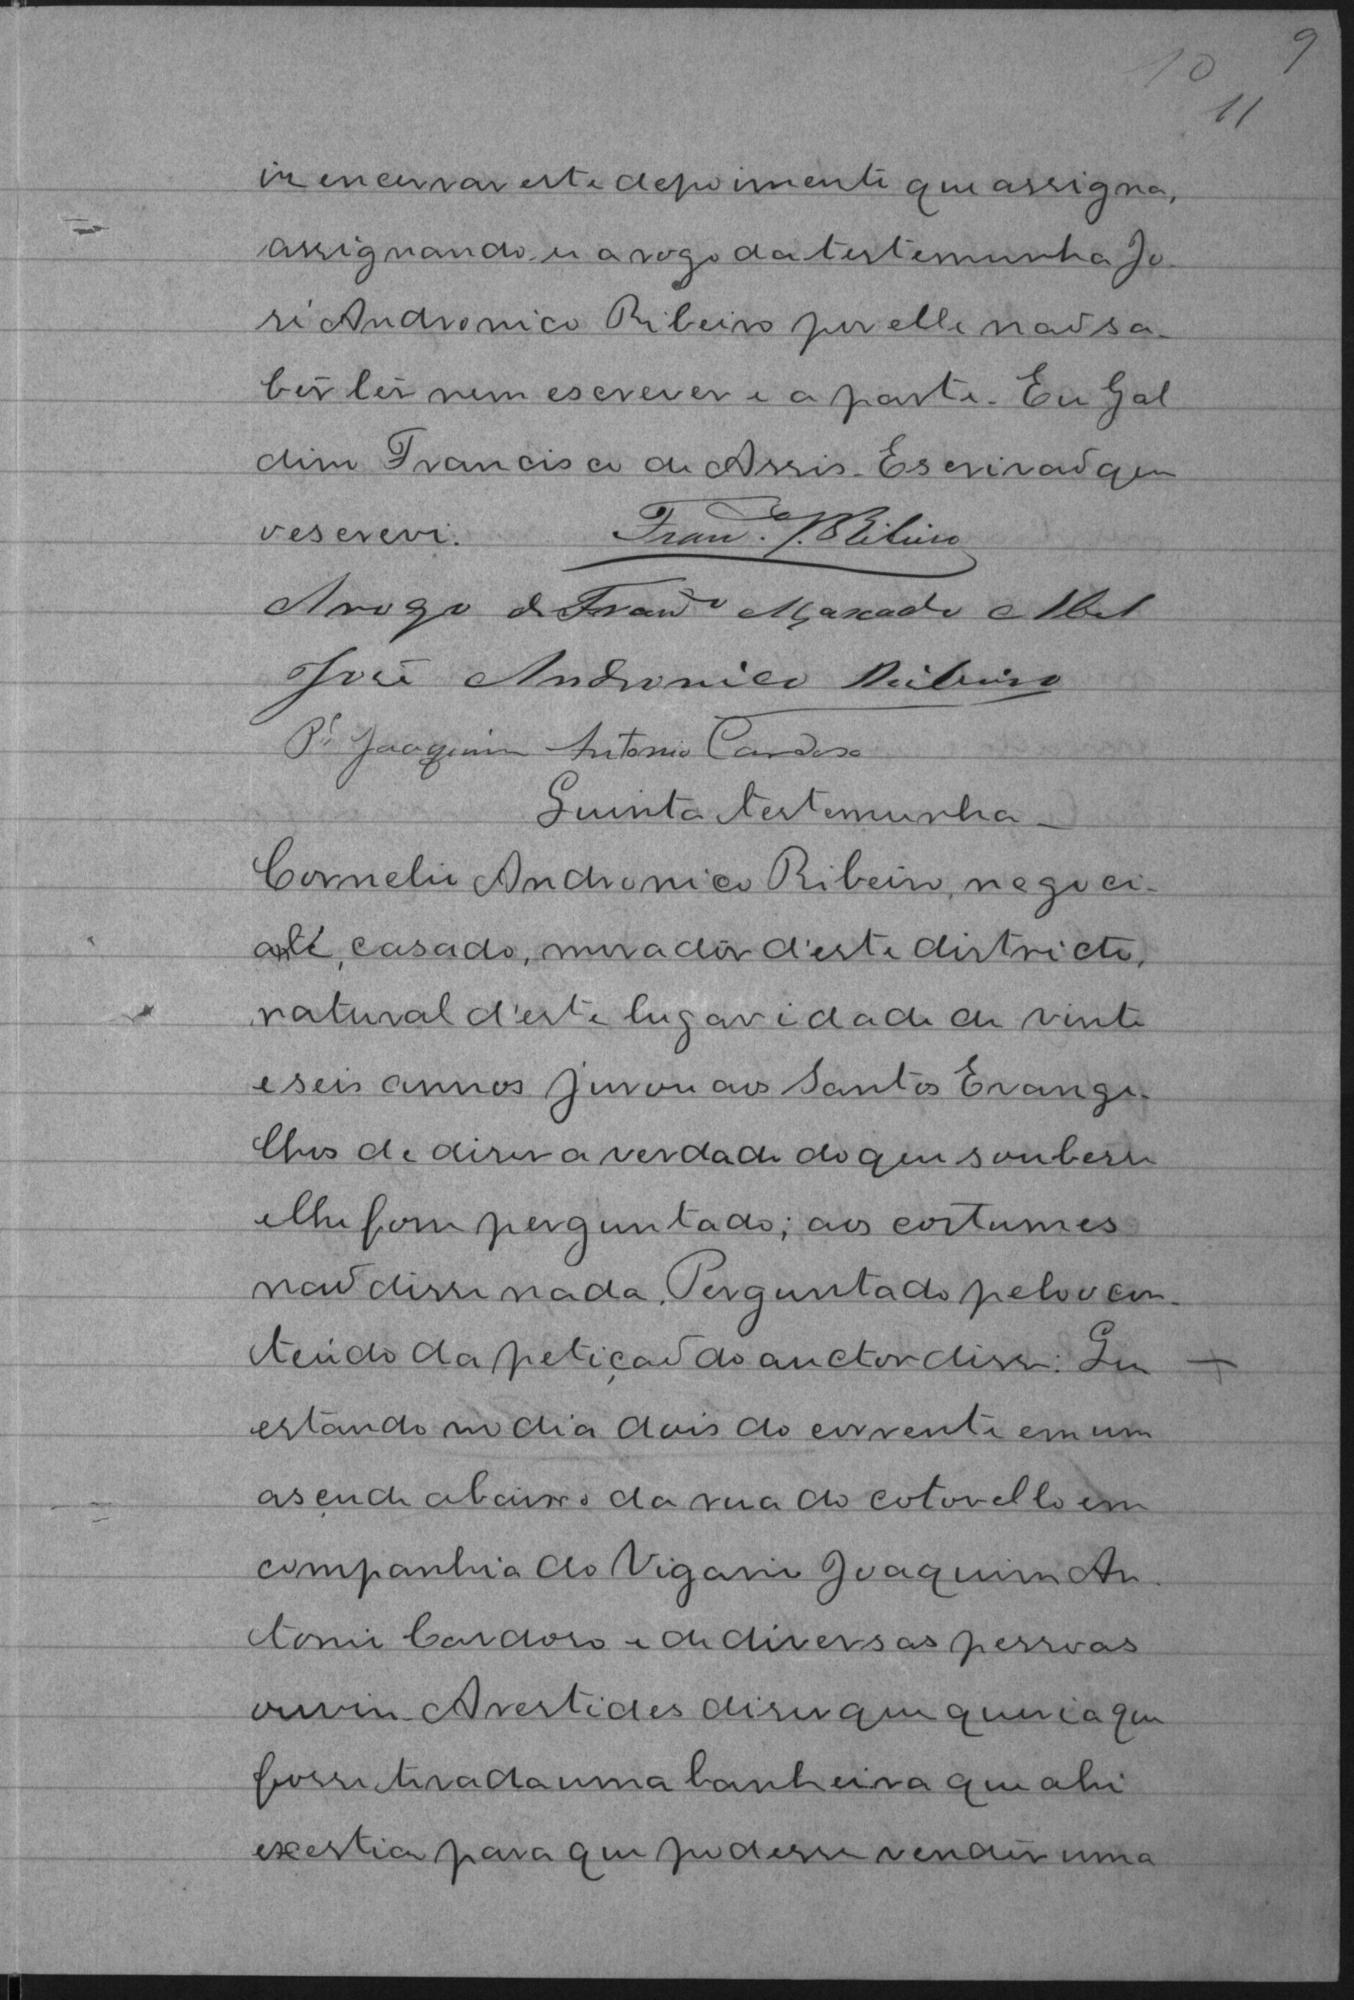 10 9
11
iz encerrar este depoimento que assigna,
assignando-se a rogo da testemunha Jo-
sé Andronico Ribeiro por elle naõ sa-
ber lêr nem escrever e a parte. Eu Gal
dino Francisco de Assis. Escrivaõ que
o escrevi. Franco. J. Ribeiro
A rogo de Franco Maxado
José Andronico Ribeiro
Pe. Joaquim Antonio Cardoso
Quinta testemunha_
Cornelio Andronico Ribeiro, negoci-
ante, casado, moradôr d'este districto,
natural d'este lugar idade de vinte
e seis annos jurou aos Santos Evange-
lhos de diser a verdade do que soubesse
e lhe fosse perguntado; aos costumes
naõ disse nada. Perguntado pelo o con-
teúdo da petiçaõ do auctor disse: Qu
estando no dia dois do corrente em um
asçude abaixo da rua do cotovello em
companhia do Vigario Joaquim An-
tonio Cardoso e de diversas pessoas
ouvio Arestides diser que queria que
fosse tirada uma banheira que ahi
exestia para que podesse vendêr uma